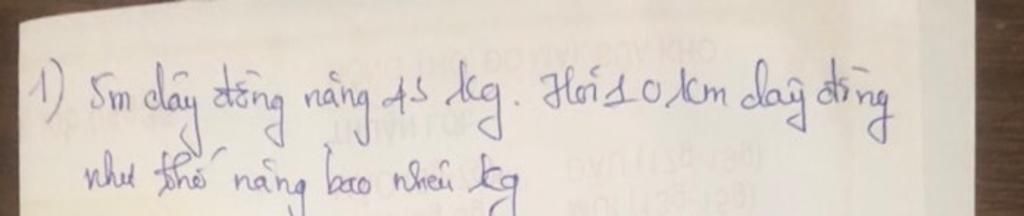 1) 5m dây đồng nặng 45 kg. Hỏi 10 km dây đồng
như thế nặng bao nhêu kg